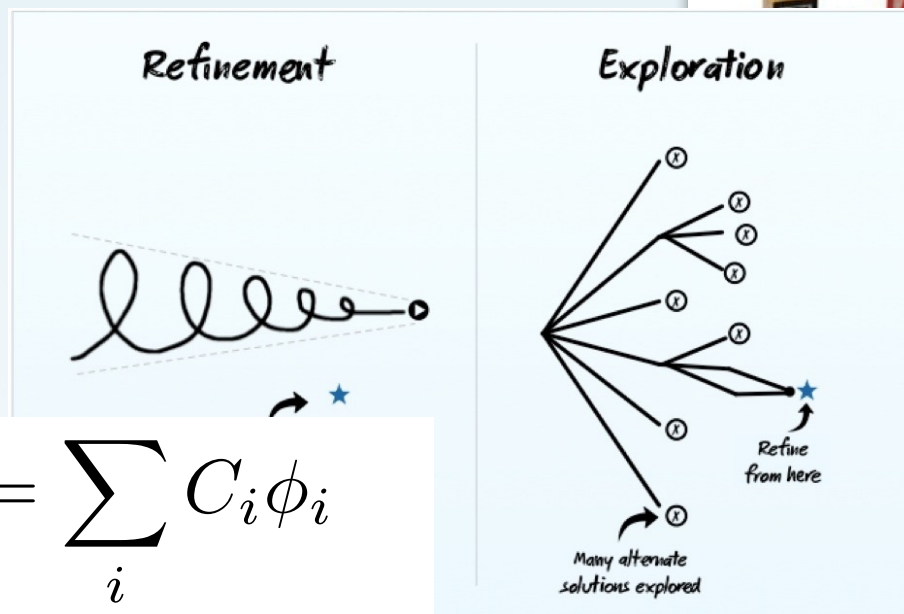 Refinement
Exploration
Refine
from here
Many alternate
solutions explored
= ∑ C_i ϕ_i
i